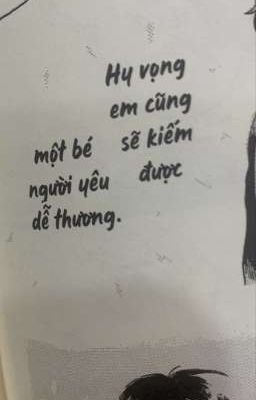 Hy vọng
em cũng
sẽ kiếm
được
một bé
người yêu
dễ thương.